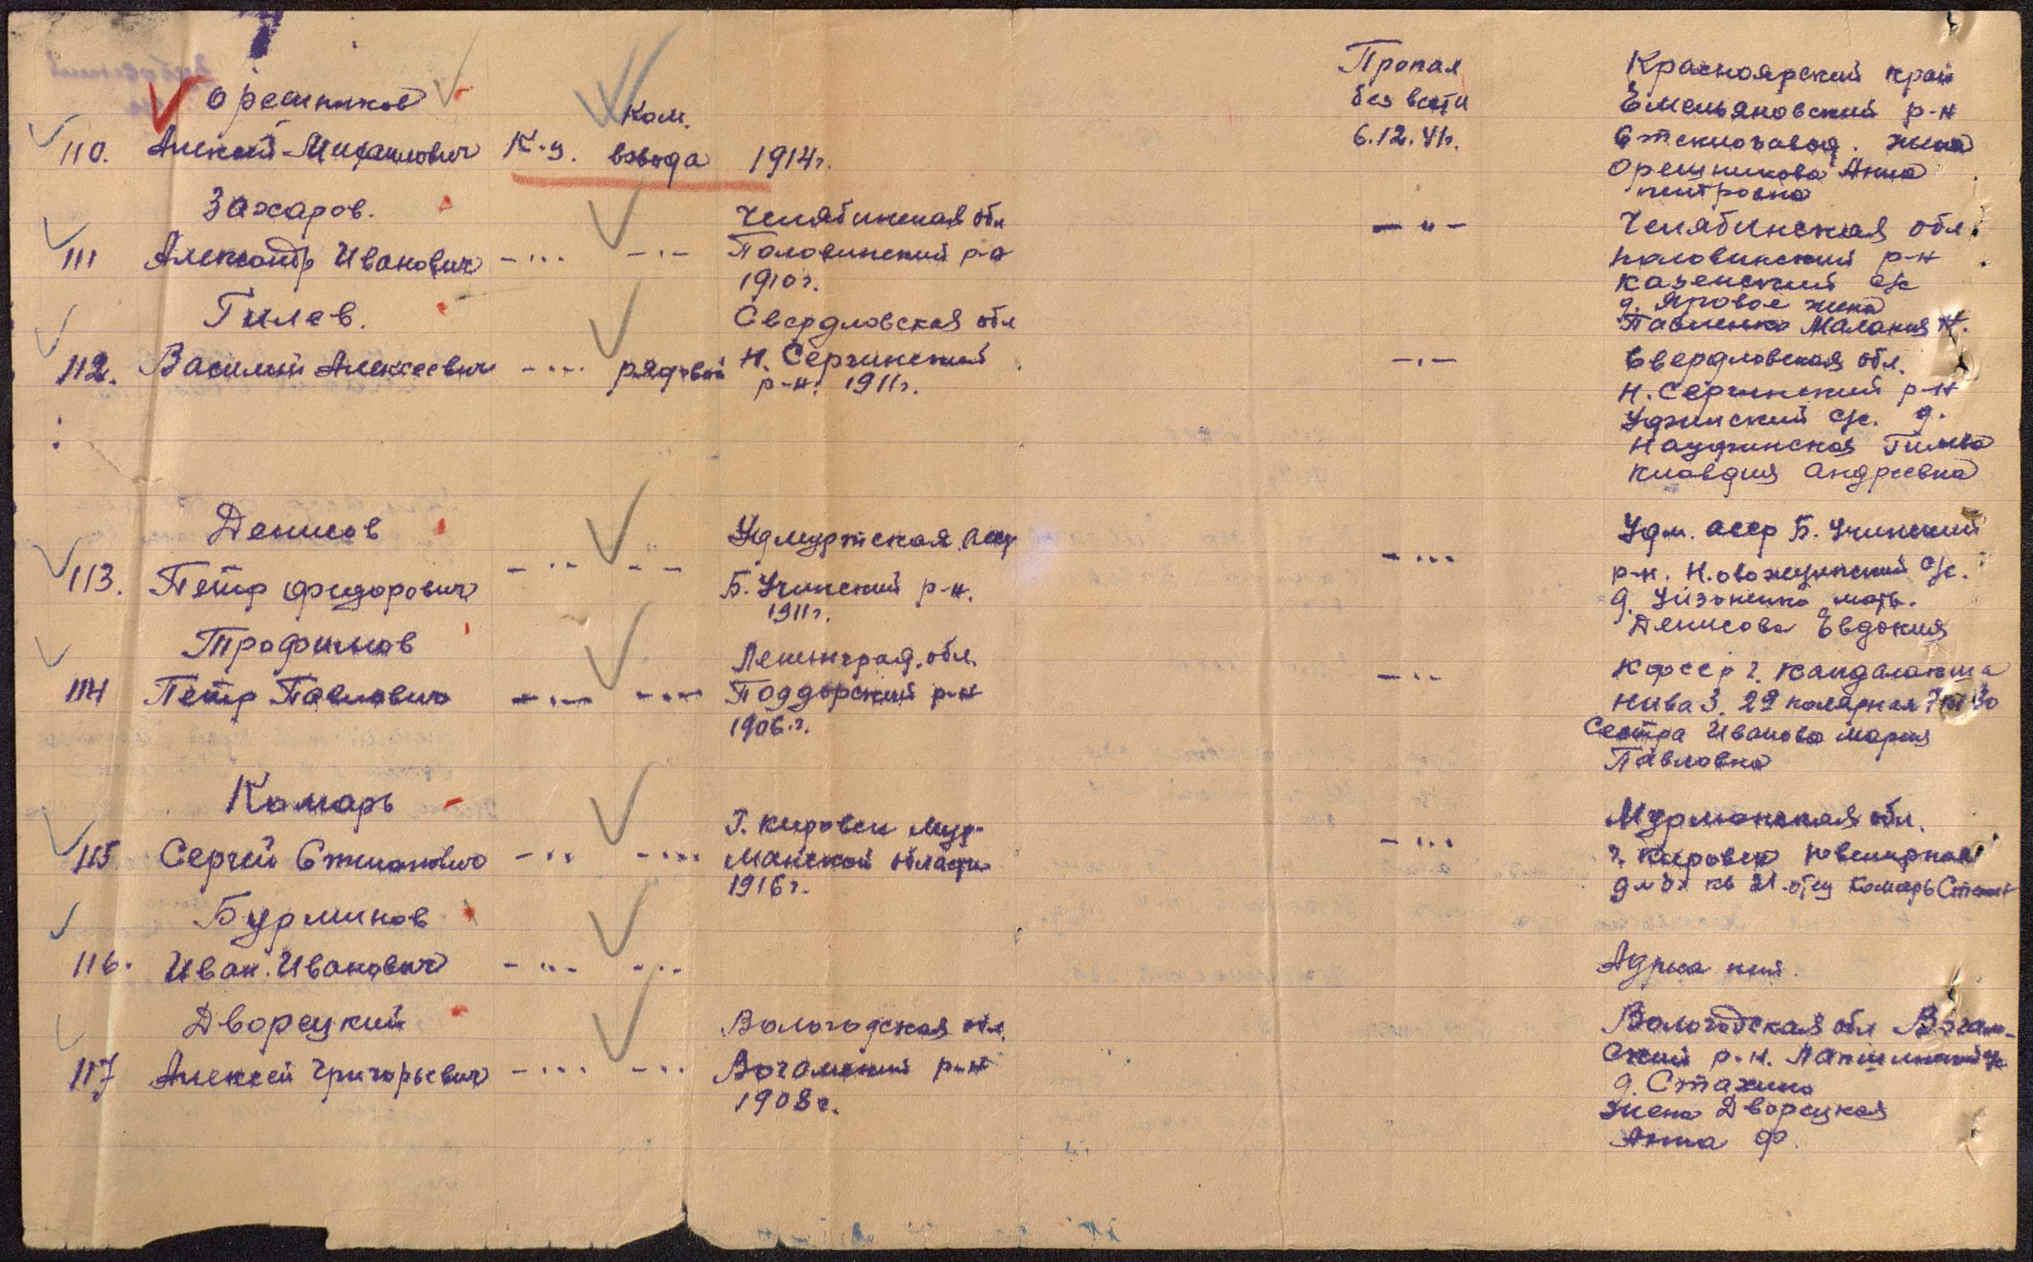 Орешников
110. Алексей Михайлович К-ц. Ком. взвода 1914г.
Пропал
без вести
6.12.41г.
Красноярский край
Емельяновский р-н
жена
Орешникова Анна
Петровна
Захаров.
111 Александр Иванович -"- -"-
Челябинская обл
Половинский р-н
1910г.
-"-
Челябинская обл.
Половинский р-н
Казенский с/с
д. Яровое жена
Павленко Малания Н.
Гилев.
112. Василий Алексеевич -"- рядовой
Свердловская обл
Н. Сергинский
р-н. 1911г.
-"-
Свердловская обл.
Н. Сергинский р-н
Уфимский с/с. д.
Гилева
Клавдия Андреевна
Денисов
113. Петр Федорович -"- -"-
Удмуртская АССР
Б. Учинский р-н.
1911г.
-"-
Удм. АССР Б. Учинский
р-н. с/с.
д. мать.
Денисова Евдокия
Трофимов
114 Петр Павлович -"- -"-
Ленинград. обл.
Поддорский р-н
1906.г.
-"-
КФССР г. Кандалакша
Нива 3. 22
Сестра Иванова Мария
Павловна
Комарь
115 Сергей Степанович -"- -"-
Г. Кировск Мур-
манской области
1916г.
-"-
Мурманская обл.
г. Кировск
кв 21 отец Комарь Степан
Бурминов
116. Иван. Иванович -"- -"-
Адреса нет.
Дворецкий
117 Алексей Григорьевич -"- -"-
Вологодская обл.
Вогамский р-н
1908г.
Вологодская обл Вогам-
ский р-н.
д. Стахино
жена Дворецкая
Анна Ф.